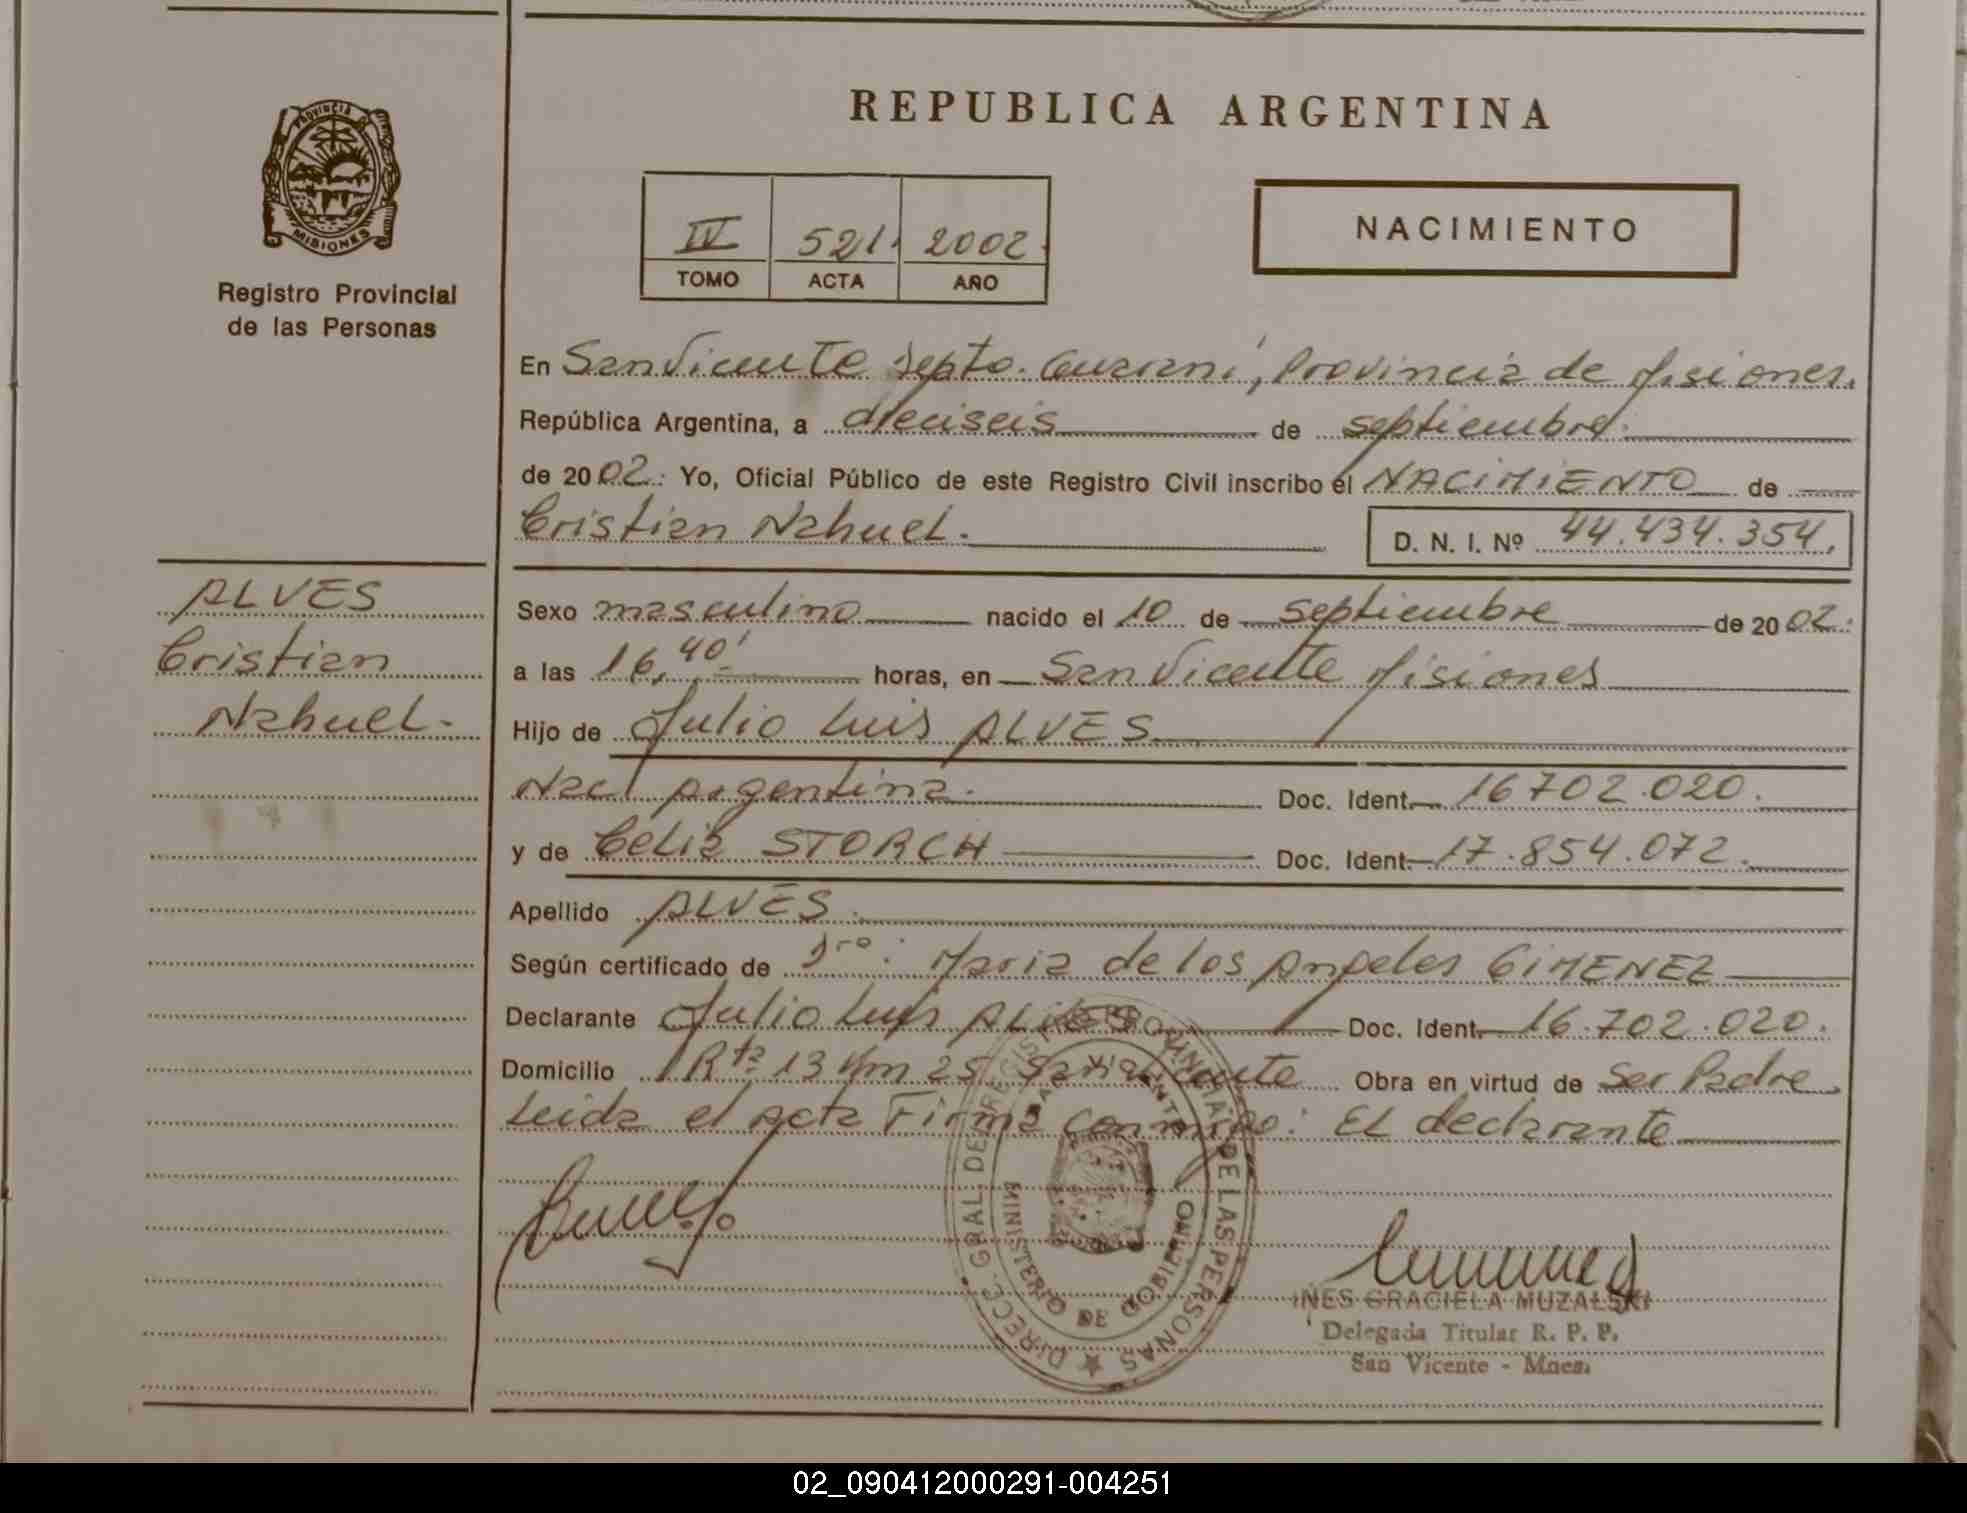 REPUBLICA ARGENTINA
PROVINCIA DE
MISIONES
Registro Provincial
de las Personas
IV 521. 2002.
TOMO ACTA AÑO
NACIMIENTO
En San Vicente Depto. Guaraní, Provincia de Misiones.
República Argentina, a dieciseis de septiembre.
de 2002: Yo, Oficial Público de este Registro Civil inscribo el NACIMIENTO de
Cristian Nahuel. D. N. I. Nº 44.434.354.
ALVES
Cristian
Nahuel.
Sexo masculino nacido el 10 de septiembre de 2002:
a las 16,40' horas, en San Vicente Misiones
Hijo de Julio Luis ALVES
Nacl argentina. Doc. Ident. 16702.020.
y de Celia STORCH Doc. Ident. 17.854.072.
Apellido ALVES.
Según certificado de Dra: Maria de los Angeles GIMENEZ
Declarante Julio Luis ALVES Doc. Ident. 16.702.020.
Domicilio Rta 13 Km 25 San Vicente Obra en virtud de Ser Padre.
Leida el acta Firma conmigo: EL declarante
DIRECC. GRAL. DE REGISTRO PROVINCIAL DE LAS PERSONAS
SAN VICENTE
MINISTERIO DE GOBIERNO
INES GRACIELA MUZALSKI
Delegada Titular R. P. P.
San Vicente - Mnes.
02_090412000291-004251